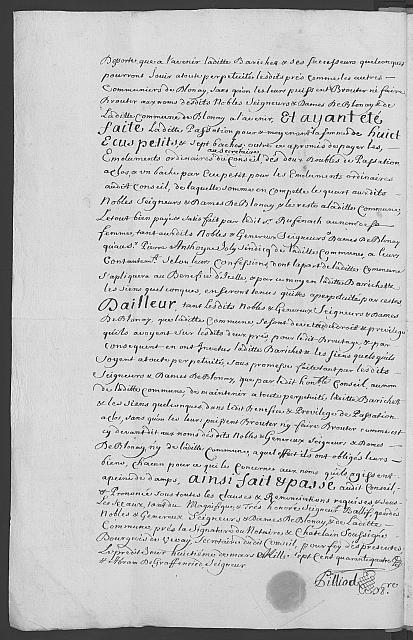 Deporte, que a l'avenir laditte Barichet & ses successeurs quelconques
pourront Jouir atoute perpetuité lesdits prés comme les autres
Communiers de Blonay, sans qu'on les leurs puissent Brouter ne faire
Brouter aux noms desdits Nobles Seigneurs & Dames De Blonay & de
Laditte Commune de Blonay a l'avenir, Et ayant été
faite Laditte Passation pour & moyennant la somme de huict
Ecus petits & sept baches, outre ce a promis de payer les
au Secretaire
Emoluments ordinaires du Conseil des deux Doubles de Passation
a clos, & un bache par Ecu petit pour les Emoluments ordinaires
audit Conseil, de laquelle somme en compette le quart auxdits
Nobles Seigneurs & Dames De Blonay & le reste a laditte Commune,
Le tout bien payé & satisfait par ledit Sr. au nom de sa
femme, tant auxdits Nobles & Genereux Seigneurs & Dames De Blonay
qu'au Sr. Pierre Anthoyne Joly Sindicq de laditte Commune, a leurs
Contentemt. selon leurs Confessions, dont la part de laditte Commune
s'apliquera au Benefice d'Icelle, & par ce moyen laditte Barichette
les siens quelconques, en seront tenus quittes a perpetuité par cestes
Dailleur, tant lesdits Nobles & Genereux Seigneurs & Dames
De Blonay, que laditte Commune se sont devetus de droit & privilege
qu'ils avoyent sur lesdits deux prés pour ledit Broutage, & par
consequent en ont Investus laditte Barichet & les siens quelcquils
soyent atoute perpetuité, sous promesse faite tant par lesdits
Seigneurs & Dames De Blonay, que par ledit honble. Conseil au nom
de laditte Commune, de maintenir a toute perpetuité laditte Barichett
& les siens quelconques dans ledit Benefice & Privilege de Passation
a clos, sans qu'on les leur puissent Brouter ny faire Brouter comme est
cy devant dit aux noms desdits Nobles & Genereux Seigneurs & Dames
De Blonay, n'y de laditte Commune, a quel effect ils ont obligés leurs
biens, chacun pour ce qui le Concerne aux noms qu'ils agissent
a peine de damps, ainsi fait & passé audit Conseil
& Prononcé sous toutes les clauses & Renonciations requises & sous
les sceaux, tant du Magnifique & Très honoré Seigneur Baillif que des
Nobles & Genereux Seigneurs & Dames De Blonay, & de laditte
Commune, près la signature du Notaire & Chatelain soussigné
Bourgeois de Vevay, Secretaire dudit Conseil, pour foy des presentes
Le predit Jour huitième de mars Mille sept Cent quarante quatre
& Abram De Graffenried Seigneur
Pilliod